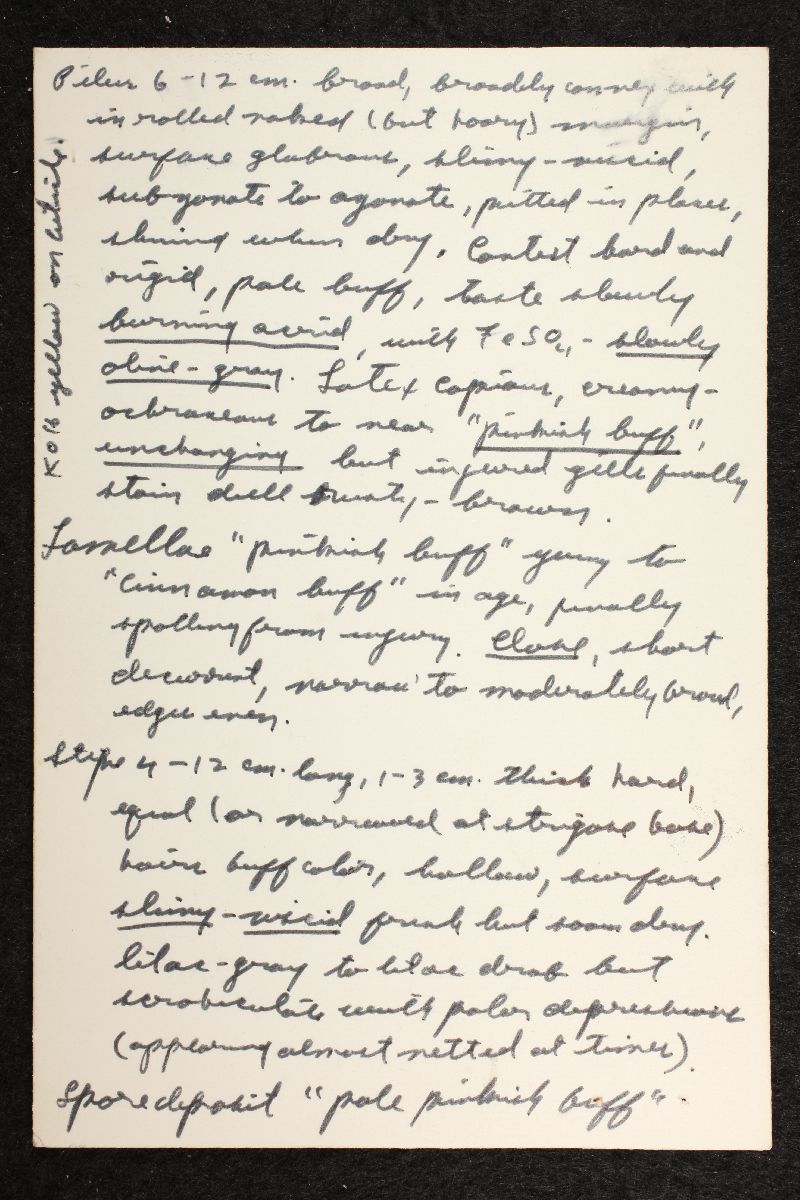 Pileus 6-12 cm. broad, broadly convex with
inrolled naked (but hoary) margin,
surface glabrous, slimy-viscid,
subzonate to azonate, pitted in places,
shining when dry. Context hard and
rigid, pale buff, taste slowly
burning acrid, with FeSO4 - slowly
olive-gray. Latex copious, creamy-
ochraceous to near "pinkish buff",
unchanging but injured gills finally
stain dull rusty-brown.
Lamellae "pinkish buff" young to
"cinnamon buff" in age, finally
spotting from injury. Close, short
decurrent, narrow to moderately broad,
edges even.
Stipe 4-12 cm. long, 1-3 cm. thick hard,
equal (or narrowed at strigose base)
hairs buff color, hollow, surface
slimy-viscid fresh but soon dry.
lilac-gray to lilac drab but
scrobiculate with paler depressions
(appearing almost netted at times)
Spore deposit "pale pinkish buff"
KOH yellow on cuticle.